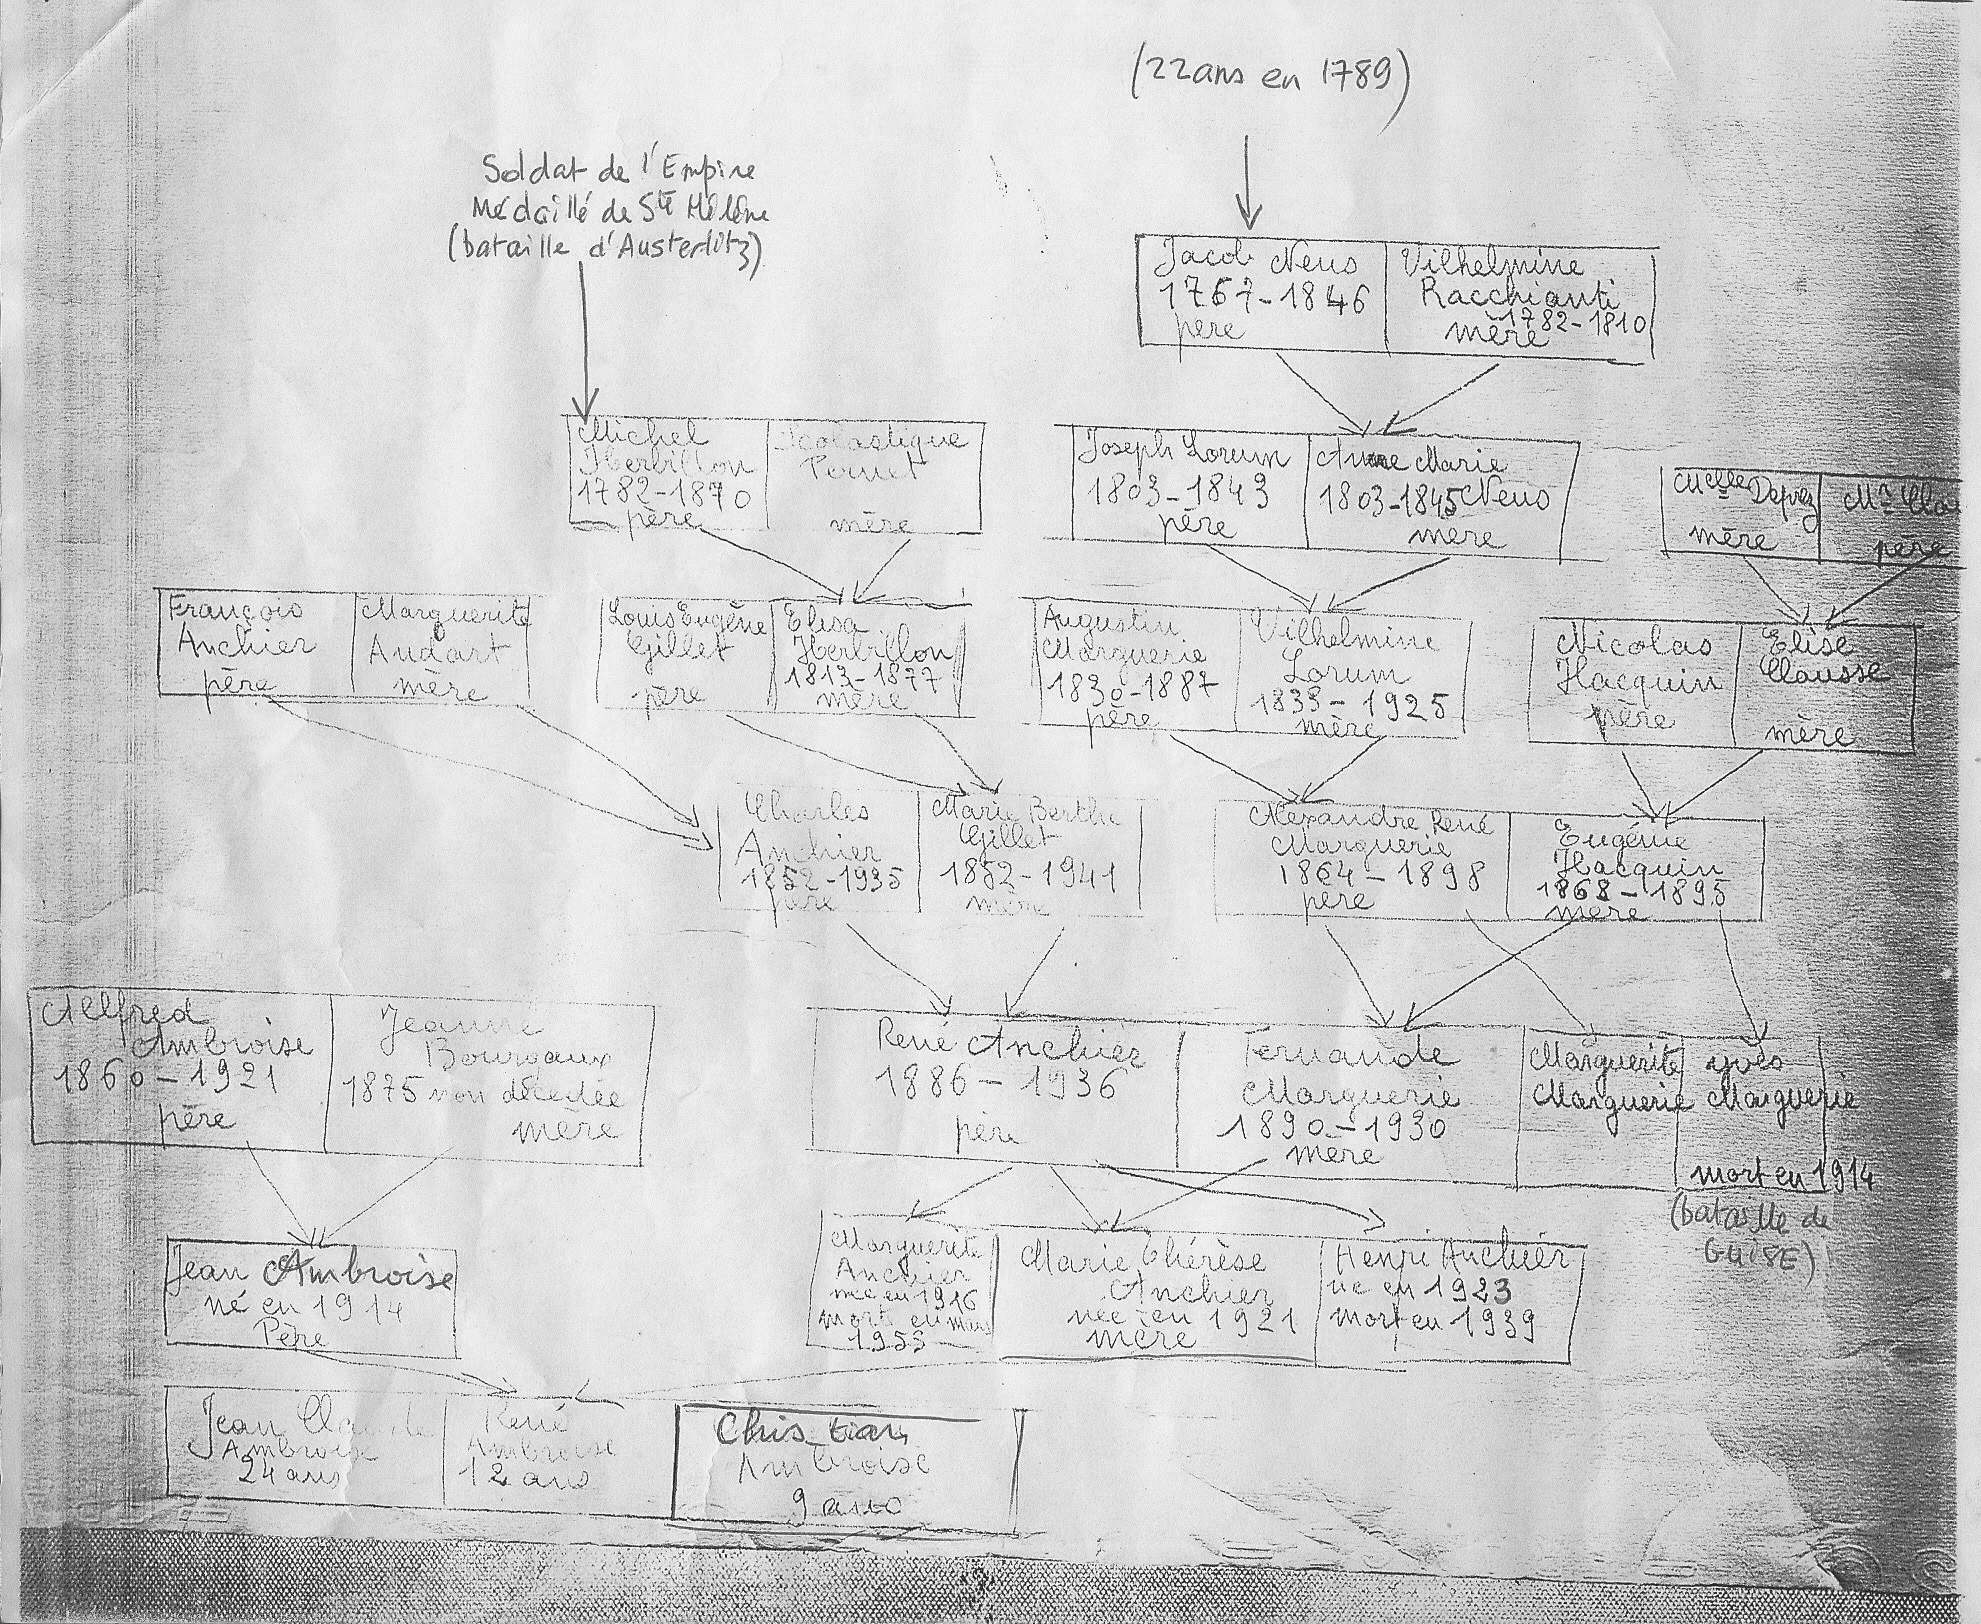 (22 ans en 1789)
Soldat de l'Empire
Médaillé de Ste Hélène
(bataille d'Austerlitz)
Jacob Neus
1767-1846
père
Vilhelmine
Racchianti
1782-1810
mère
Michel
Herbillon
1782-1870
père
Scolastique
Pernet
mère
Joseph Lorum
1803-1843
père
Anne Marie
1803-1845 Neus
mère
Melle Deprez
mère
Mr
père
François
Anchier
père
Marguerite
Audart
mère
Louis Eugène
Gillet
père
Elisa
Herbillon
1813-1877
mère
Augustin
Marguerie
1830-1887
père
Vilhelmine
Lorum
1833-1925
mère
Nicolas
Hacquin
père
Elise
Clausse
mère
Charles
Anchier
1852-1935
père
Marie Berthe
Gillet
1852-1941
mère
Alexandre René
Marguerie
1864-1898
père
Eugénie
Hacquin
1868-1895
mère
Alfred
Ambroise
1860-1921
père
Jeanne
Bourgaux
1875 non décédée
mère
René Anchier
1886-1936
père
Fernande
Marguerie
1890-1930
mère
Marguerite
Marguerie
yves
Marguerie
mort en 1914
(bataille de
GUISE)
Jean Ambroise
né en 1914
Père
Marguerite
Anchier
née en 1916
morte en mars
1953
Marie Thérèse
Anchier
née en 1921
mère
Henri Anchier
né en 1923
mort en 1939
Jean Claude
Ambroise
24 ans
René
Ambroise
12 ans
Christian
Ambroise
9 ans